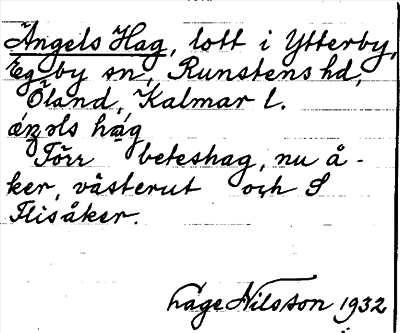 Ängels Hag, lott i Ytterby,
Egby sn, Runstens hd,
Öland, Kalmar l.
hág
Torr beteshag, nu å-
ker, västerut och S
Flisåker.
Åge Nilsson 1932